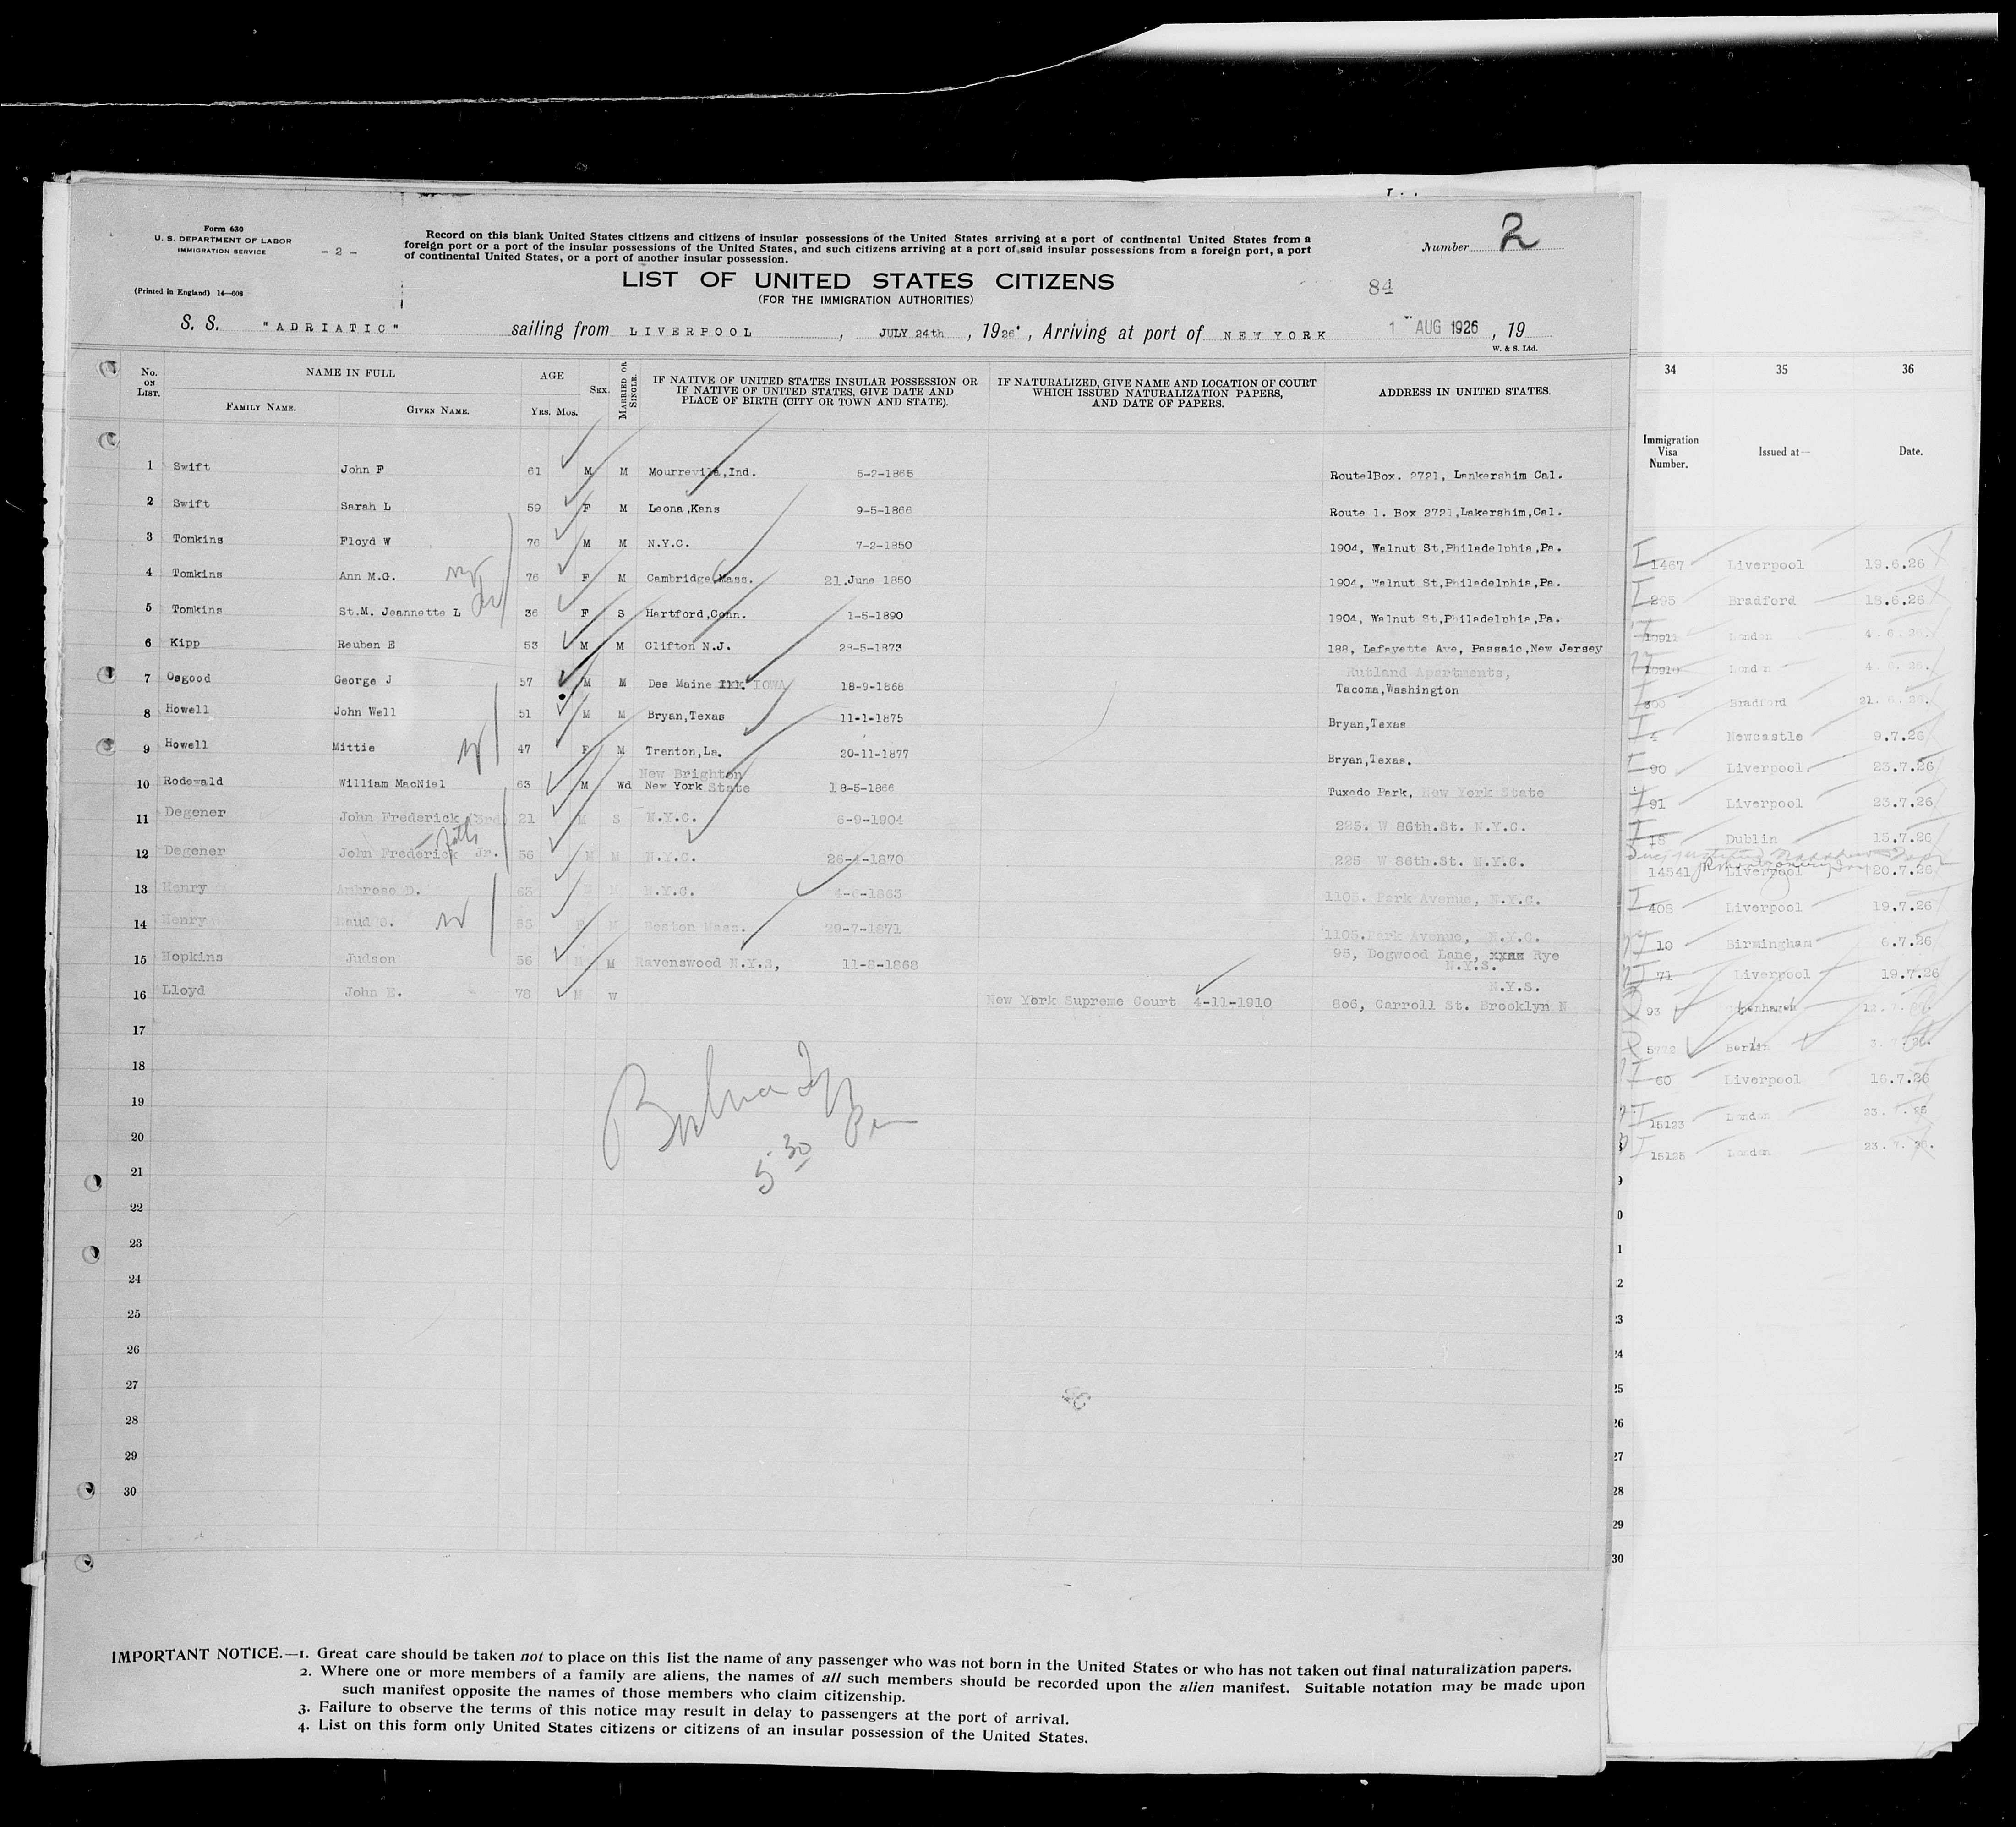 Form 630
U. S. DEPARTMENT OF LABOR
IMMIGRATION SERVICE
- 2 -
(Printed in England) 14—608
Record on this blank United States citizens and citizens of insular possessions of the United States arriving at a port of continental United States from a
foreign port or a port of the insular possessions of the United States, and such citizens arriving at a port of said insular possessions from a foreign port, a port
of continental United States, or a port of another insular possession.
Number 2
LIST OF UNITED STATES CITIZENS
(FOR THE IMMIGRATION AUTHORITIES)
84
S. S. "ADRIATIC" sailing from LIVERPOOL, JULY 24th, 1926, Arriving at port of NEW YORK 1 AUG 1926, 19
W. & S. Ltd.
No. ON LIST. NAME IN FULL FAMILY NAME. GIVEN NAME. AGE YRS. MOS. SEX. MARRIED OR SINGLE. IF NATIVE OF UNITED STATES INSULAR POSSESSION OR IF NATIVE OF UNITED STATES, GIVE DATE AND PLACE OF BIRTH (CITY OR TOWN AND STATE). IF NATURALIZED, GIVE NAME AND LOCATION OF COURT WHICH ISSUED NATURALIZATION PAPERS, AND DATE OF PAPERS. ADDRESS IN UNITED STATES.
1 Swift John F 61 M M Mourrevile,Ind. 5-2-1865 Route1Box. 2721, Lankershim Cal.
2 Swift Sarah L 59 F M Leona,Kans 9-5-1866 Route 1. Box 2721,Lakershim,Cal.
3 Tomkins Floyd W 76 M M N.Y.C. 7-2-1850 1904, Walnut St,Philadelphia,Pa.
4 Tomkins Ann M.G. 76 F M Cambridge Mass. 21.June 1850 1904, Walnut St,Philadelphia,Pa.
5 Tomkins St.M. Jeannette L 36 F S Hartford,Conn. 1-5-1890 1904, Walnut St,Philadelphia,Pa.
6 Kipp Reuben E 53 M M Clifton N.J. 28-5-1873 188, Lafayette Ave, Passaic,New Jersey
7 Osgood George J 57 M M Des Maine IOWA 18-9-1868 Rutland Apartments,
Tacoma,Washington
8 Howell John Well 51 M M Bryan,Texas 11-1-1875 Bryan,Texas
9 Howell Mittie 47 F M Trenton,La. 20-11-1877 Bryan,Texas.
New Brighton
10 Rodewald William MacNiel 63 M Wd New York State 18-5-1866 Tuxedo Park, New York State
11 Degener John Frederick (3rd) 21 M S N.Y.C. 6-9-1904 225. W 86th.St. N.Y.C.
12 Degener John Frederick Jr. 56 M M N.Y.C. 1870 225 W 86th.St. N.Y.C.
13 Henry Ambrose D. 63 M M N.Y.C. 1863 1105. Park Avenue, N.Y.C.
14 Henry Maud G. 55 F M Boston Mass. 29-7-1871 1105.Park Avenue, N.Y.C.
15 Hopkins Judson 56 M M Ravenswood N.Y.S, 11-8-1868 95, Dogwood Lane, xxxx Rye
N.Y.S.
N.Y.S.
16 Lloyd John E. 78 M W New York Supreme Court 4-11-1910 806, Carroll St. Brooklyn N
17
18
19
20
21
22
23
24
25
26
27
28
29
30
5 30 Pm
IMPORTANT NOTICE.—1. Great care should be taken not to place on this list the name of any passenger who was not born in the United States or who has not taken out final naturalization papers.
2. Where one or more members of a family are aliens, the names of all such members should be recorded upon the alien manifest. Suitable notation may be made upon
such manifest opposite the names of those members who claim citizenship.
3. Failure to observe the terms of this notice may result in delay to passengers at the port of arrival.
4. List on this form only United States citizens or citizens of an insular possession of the United States.
34 35 36
Immigration Visa Number. Issued at— Date.
1467 Liverpool 19.6.26
295 Bradford 18.6.26
10911 London 4.6.26.
10910 London 4.6.26.
300 Bradford 21.6.26.
4 Newcastle 9.7.26
90 Liverpool. 23.7.26
91 Liverpool 23.7.26
18 Dublin 15.7.26
14541 Liverpool 20.7.26
408 Liverpool 19.7.26
10 Birmingham 6.7.26
71 Liverpool 19.7.26
93 12.7.
Berlin 3.7.26.
60 Liverpool 16.7.26
15123 London 23.7.26
15125 London 23.7.26.